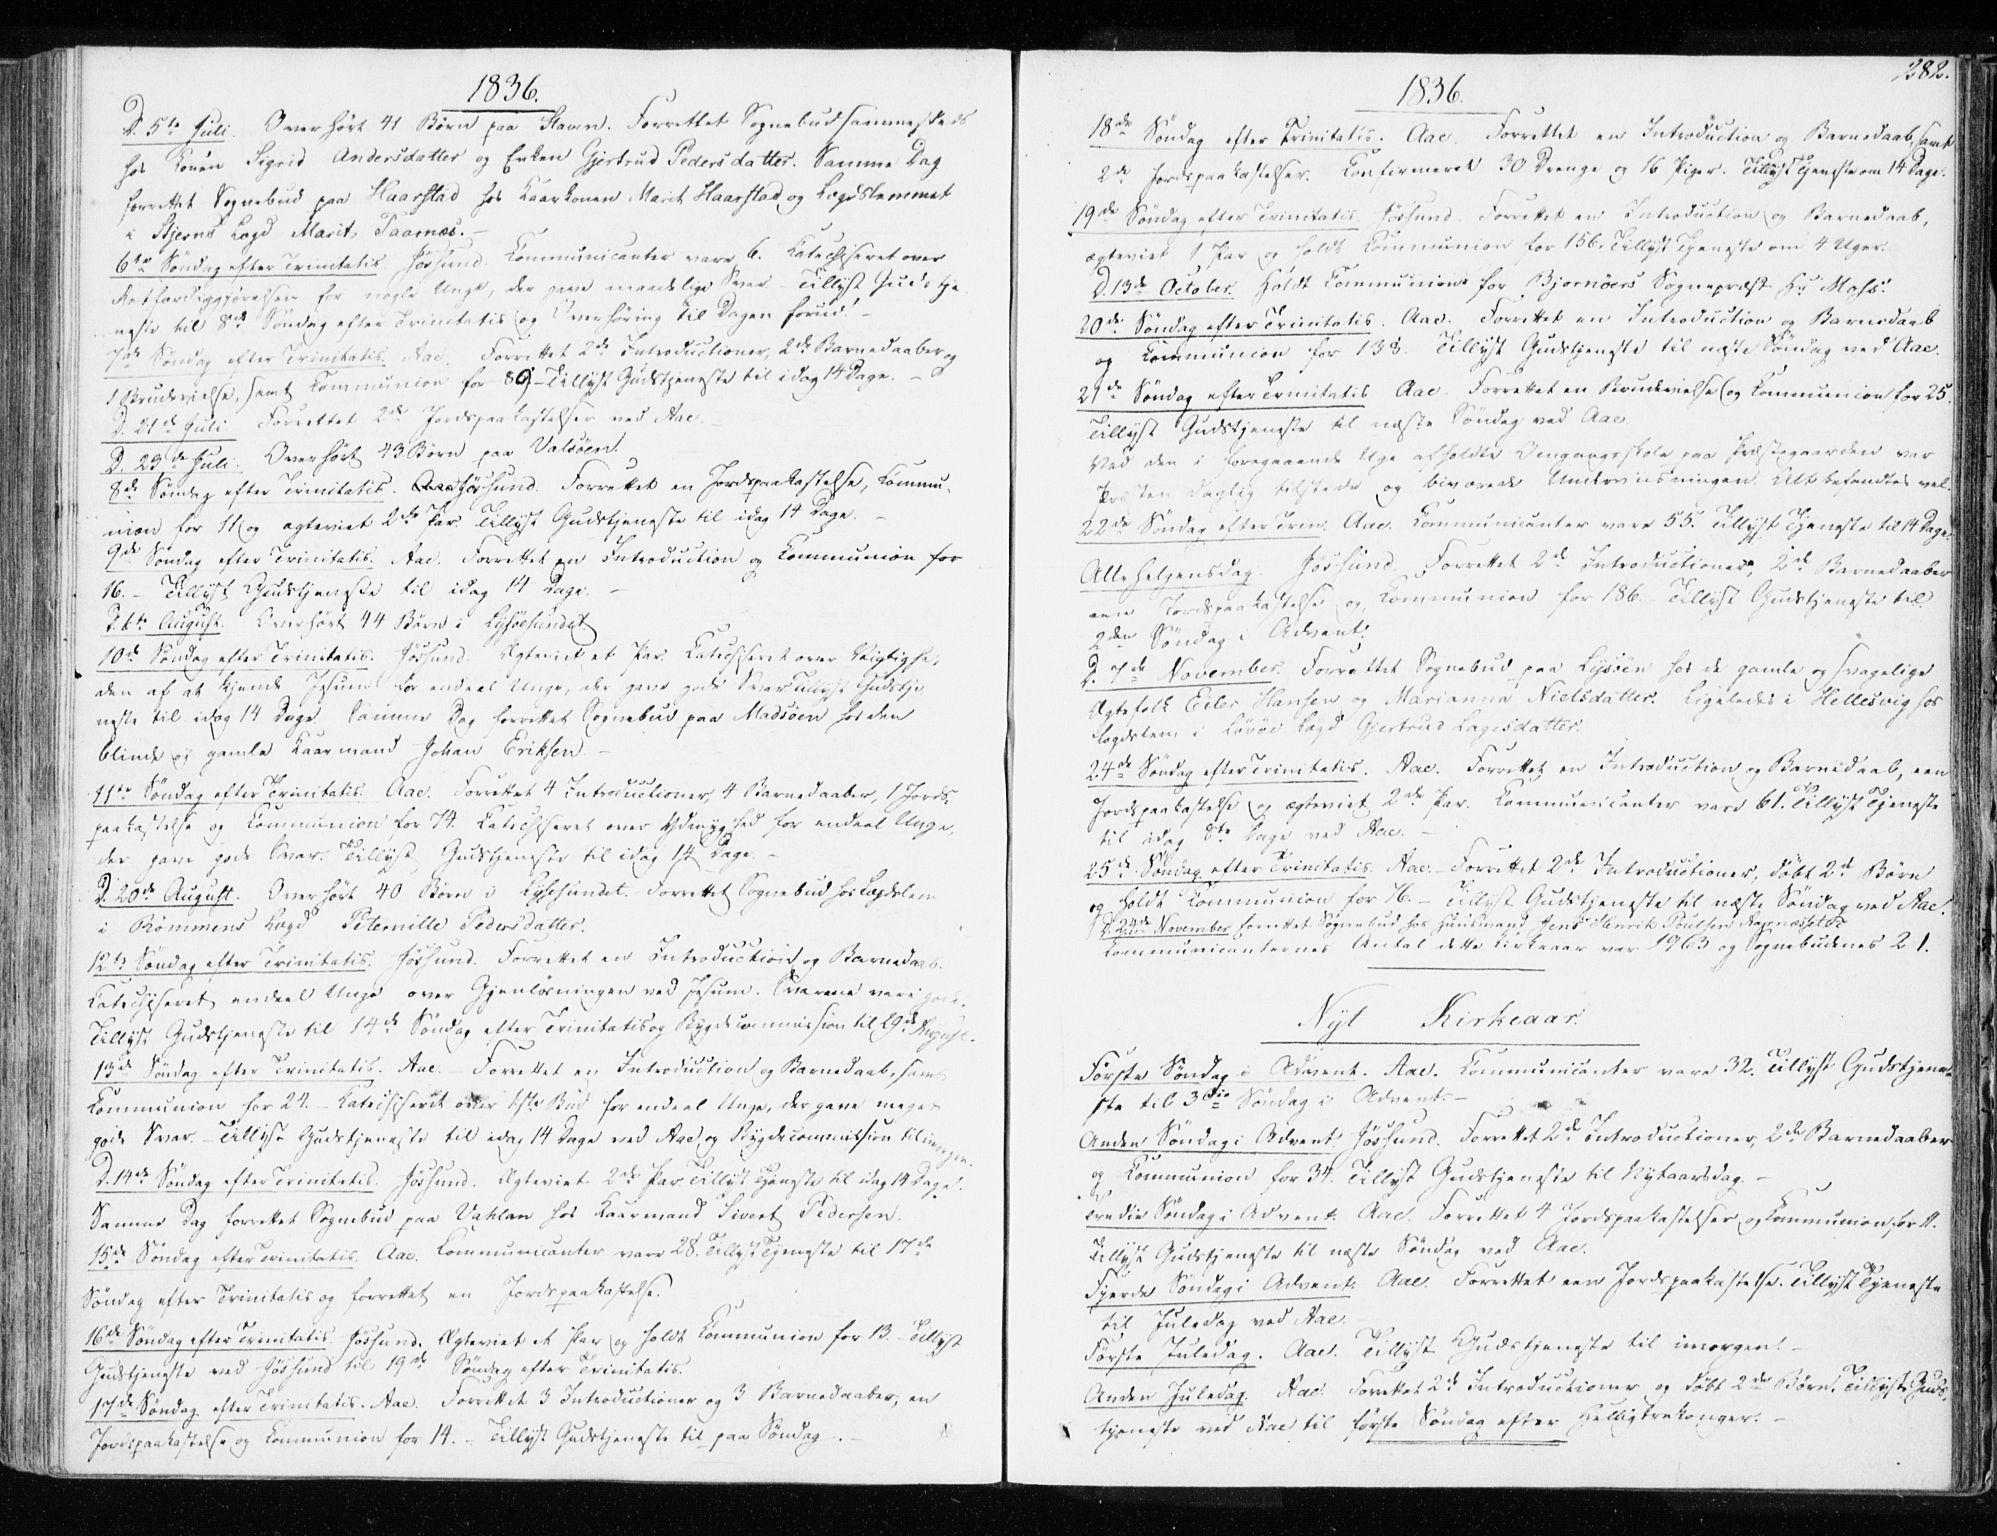 1836.
D. 5te Juli. Overhört 41 Börn paa Stavnn. Forrettet Sognebud sammesteds
hos Konen Sigrid Andersdatter og Enken Gjertrud Pedersdatter. Samme Dag
forrettet Sognebud paa Haarstad hos Kaarkonen Marit Haarstad og Lægdslemmet
i Stjerns Lægd Marit Taarnæs.-
6te Söndag efter Trinitatis. Jössund. Communicanter vare 6. Catechiseret over
Retfærdiggjörelsen for nogle Unge, der gave maadelige Svar - Tillyst Gudstje
neste til 8de Söndag efter Trinitatis og Overhöring til Dagen forud. -
7de Söndag efter Trinitatis. Aae. Forrettet 2de Introductioner, 2de Barnedaaber og
1 Brudevielse, samt Communion for 89 - Tillyst Gudstjeneste til idag 14 Dage. -
D. 21de Juli Forrettet 2de Jordspaakastelser ved Aae. -
D. 23de Juli. Overhört 43 Börn paa Valsöen.
8de Söndag efter Trinitatis. Jössund. Forrettet en Jordspaakastelse, Commu-
nion for 11 og egteviet 2de Par. Tillyst Gudstjeneste til idag 14 Dage. -
9de Söndag efter Trinitatis. Aae. Forrettet en Introduction og Communion for
16. - Tillyst Gudstjeneste til idag 14 Dage. -
D. 6te August. Overhört 44 Börn i Lysöesundet
10de Söndag efter Trinitatis. Jössund. Egteviet et Par. Catechiseret over Vigtighe-
den af at kjende Jesum for endeel Unge, der gave gode Svar Tillyst Gudstje
neste til idag 14 Dage. Samme Dag forrettet Sognebud paa Madsöen hos den
blinde og gamle Kaarmand Johan Eriksen. -
11te Söndag efter Trinitatis. Aae. Forrettet 4 Introductioner, 4 Barnedaaber, 1 Jords
paakastelse og Communion for 74. Catechiseret over Ydmyghed for endeel Unge,
der gave gode Svar. Tillyst Gudstjeneste til idag 14 Dage. -
D. 20de August. Overhört 40 Börn i Lysesundet. - Forrettet Sognebud hos Lægdslem
i Römmens Lægd Peternille Pedersdatter.
12te Söndag efter Trinitatis. Jössund. Forrettet en Introduction og Barnedaab.
Catechiseret endeel Unge over Gjenlösningen ved Jesum. Svarene vare gode.
Tillyst Gudstjeneste til 14de Söndag efter Trinitatis og Bygdecommission til 29de August.
13de Söndag efter Trinitatis. Aae. Forrettet en Introduction og Barnedaab, samt
Communion for 24. - Catechiseret over 1ste Bud for endeel Unge, der gave meget
gode Svar. - Tillyst Gudstjeneste til idag 14 Dage ved Aae og Bygdecommission til imorgen.
D. 14de Söndag efter Trinitatis. Jössund. Egteviet 2de Par Tillyst Tjeneste til idag 14 Dage.
Samme Dag forrettet Sognebud paa Vahlan hos Kaarmand Sivert Pedersen.
15de Söndag efter Trinitatis. Aae. Communicanter vare 28. Tillyst Tjeneste til 17de
Söndag efter Trinitatis og forrettet en Jordspaakastelse.
16de Söndag efter Trinitatis. Jössund. Egteviet et Par og holdt Communion for 13. - Tillyst
Gudstjeneste ved Jössund til 19de Söndag efter Trinitatis.
17de Söndag efter Trinitatis. Aae. Forrettet 3 Introductioner og 3 Barnedaaber, en
Jordspaakastelse og Communion for 14. - Tillyst Gudstjeneste til paa Söndag. -
282.
1836.
18de Söndag efter Trinitatis. Aae. Forrettet en Introduction og Barnedaab, samt
2de Jordspaakastelser. Confirmeret 30 Drenge og 16 Piger. Tillyst Tjeneste om 14 Dage.
19de Söndag efter Trinitatis. Jössund. Forrettet en Introduction og Barnedaab,
egteviet 1 Par og holdt Communion for 156. Tillyst Tjeneste om 4 Uger.
D. 13de October. Holdt Communion for Bjornöers Sognepræst Hr Mohs.
20de Söndag efter Trinitatis. Aae. Forrettet en Introduction og Barnedaab
og Communion for 138. Tillyst Gudstjeneste til næste Söndag ved Aae.
21de Söndag efter Trinitatis Aae. Forrettet en Brudevielse og Communion for 25.
Tillyst Gudstjeneste til næste Söndag ved Aae
Ved den i foregaaende Uge afholdte Omgangsskole paa Præstegaarden var
Præsten daglig tilstede og bivaanede Underviisningen. Alt befandtes vel.
22de Söndag efter Trin. Aae. Communicanter vare 55. Tillyst Tjeneste til 14 Dage.
Allehelgensdag. Jössund. Forrettet 2de Introductioner, 2de Barnedaaber
een Jordspaakastelse og Communion for 186. - Tillyst Gudstjeneste til
2den Söndag i Advent.
D. 7de November. Forrettet Sognebud paa Lysöen hos de gamle og svagelige
Egtefolk Eiler Hansen og Marianna Nielsdatter. Ligeledes i Hellesvig hos
Lægdslem i Lövöe Lægd Gjertrud Lagesdatter.
24de Söndag efter Trinitatis. Aae. Forrettet en Introduction og Barnedaab, een
Jordspaakastelse og egteviet 2de Par. Communicanter vare 61. Tillyst Tjeneste
til idag 8te Dage ved Aae. -
25de Söndag efter Trinitatis. Aae. - Forrettet 2de Introductioner, döbt 2de Börn
og holdt Communion for 76. - Tillyst Gudstjeneste til næste Söndag ved Aae.
D. 24de November forrettet Sognebud hos Huusmand Jens Henrik Poulsen
Communicanternes Antal dette Kirkeaar var 1963 og Sognebudenes 21.
Nyt Kirkeaar.
Förste Söndag i Advent. Aae. Communicanter vare 32. Tillyst Gudstjene-
ste til 3die Söndag i Advent. -
Anden Söndag i Advent Jössund. Forrettet 2de Introductioner, 2de Barnedaaber
og Communion for 34. Tillyst Gudstjeneste til Nytaarsdag. -
Tredie Söndag i Advent. Aae. Forrettet 4 Jordspaakastelser og Communion for 11.
Tillyst Gudstjeneste til næste Söndag ved Aae.
Fjerde Söndag i Advent. Aae. Forrettet een Jordspaakastelse. Tillyst Tjeneste
til Juledag ved Aae.
Förste Juledag. Aae. Tillyst Gudstjeneste til imorgen! -
Anden Juledag. Aae. Forrettet 2de Introductioner og döbt 2de Börn. Tillyst Guds-
tjeneste ved Aae til förste Söndag efter Helligtrekonger. -